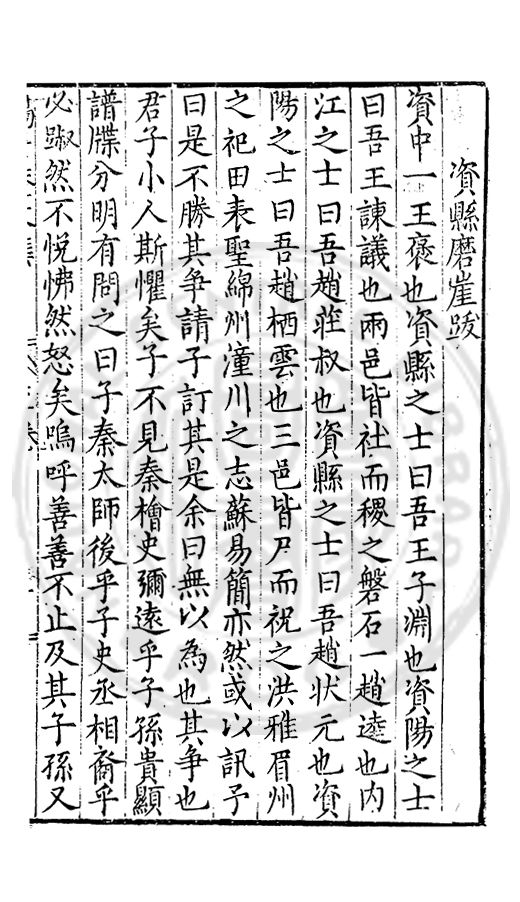 資縣磨崖跋
資中一王褒也資縣之士曰吾王子淵也資陽之士
曰吾王諫議也兩邑皆社而稷之磐石一趙逵也内
江之士曰吾趙莊叔也資縣之士曰吾趙狀元也資
陽之士曰吾趙栖雲也三邑皆尸而祝之洪雅眉州
之祀田表聖綿州潼川之志蘇易簡亦然或以訊予
曰是不勝其爭請子訂其是余曰無以為也其爭也
君子小人斯懼矣子不見秦檜史彌遠乎子孫貴顯
譜牒分明有問之曰子秦太師後乎子史丞相裔乎
必蹴然不悅怫然怒矣嗚呼善善不止及其子孫又